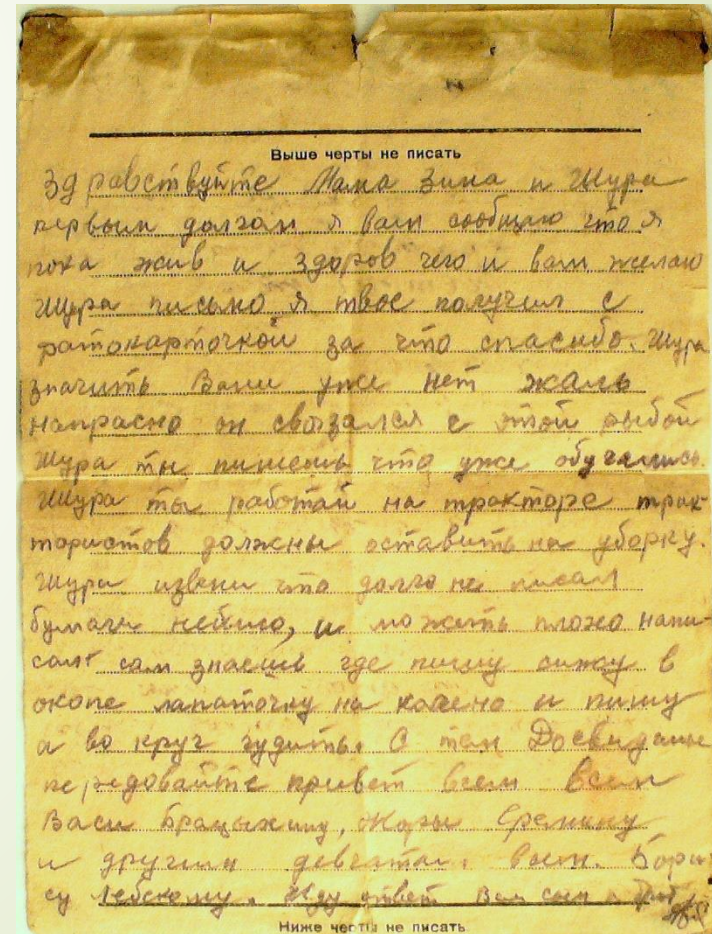 Выше черты не писать
Здравствуйте Мама Зина и Шура
первым долгом я вам сообщаю что я
пока жив и здоров чего и вам желаю
Шура письмо я твое получил с
фотокарточкой за что спасибо. Шура
значить Вани уже нет жаль
напрасно он связался с этой рыбой
Шура ты пишешь что уже обучались.
Шура ты работай на тракторе трак-
тористов должны оставить на уборку.
Шура извени что долго не писал
бумаги небыло, и можеть плохо напи-
сал сам знаешь где пишу сижу в
окопе лапаточку на колено и пишу
а во круг гудить. С тем Досвидание
передовайте привет всем всем
Васи Брацыхину, Жоры Еремину
и другим девчатам. всем. Бори-
су Лебскому. Жду ответ Ваш сын и брат
Ниже черты не писать